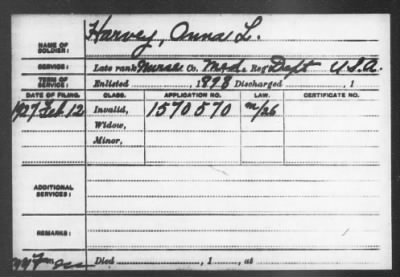 NAME OF SOLDIER: Harvey, Anna L.
SERVICE: Late rank Nurse Co. Med. Reg Dept U.S.A.
TERM OF SERVICE: Enlisted 1898 Discharged , 1
DATE OF FILING. CLASS. APPLICATION NO. LAW. CERTIFICATE NO.
1927 Feb 12 Invalid, 1570570 m/26
Widow,
Minor,
ADDITIONAL SERVICES:
REMARKS:
Died , 1 , at